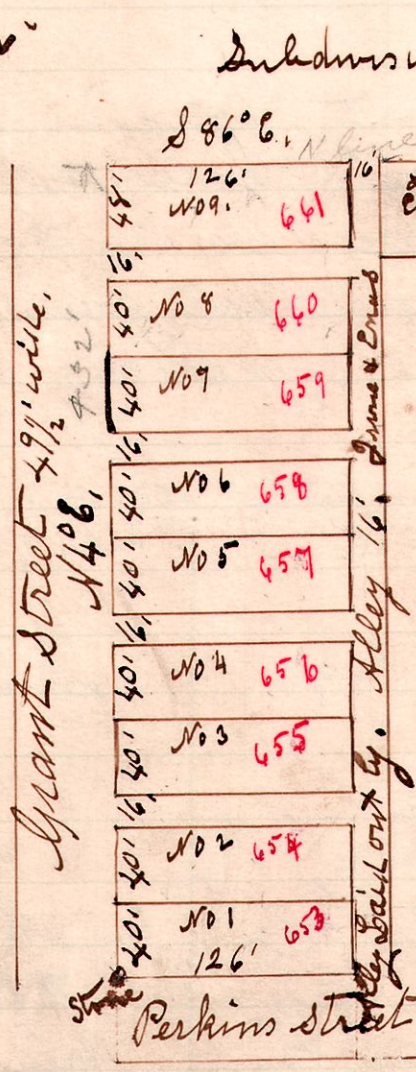 Subdivis
S 86° E.
N line
126'
16'
48'
No 9.
661
16'
40'
No 8
660
40'
No 7
659
16'
40'
No 6
658
40'
No 5
657
16'
40'
No 4
656
40'
No 3
655
16'
40'
No 2
654
40'
No 1
653
126'
Grant Street 49½' wide.
432'
N 4° E.
Alley Laid out by. Alley 16'.
Stone
Perkins Street